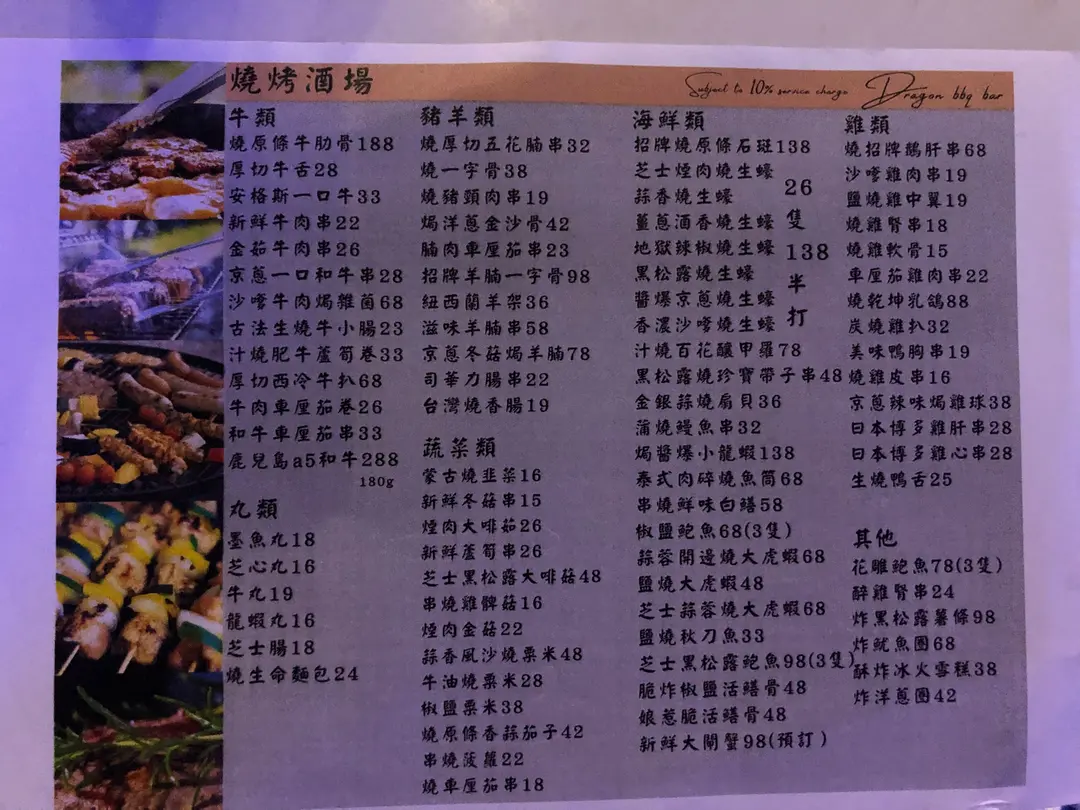 燒烤酒場
Subject to 10% service charge
Dragon bbq bar
牛類
燒原條牛肋骨188
厚切牛舌28
安格斯一口牛33
新鮮牛肉串22
金茹牛肉串26
京蔥一口和牛串28
沙嗲牛肉焗雜菌68
古法生燒牛小腸23
汁燒肥牛蘆筍卷33
厚切西冷牛扒68
牛肉車厘茄卷26
和牛車厘茄串33
鹿兒島a5和牛288
180g
丸類
墨魚丸18
芝心丸16
牛丸19
龍蝦丸16
芝士腸18
燒生命麵包24
豬羊類
燒厚切五花腩串32
燒一字骨38
燒豬頸肉串19
焗洋蔥金沙骨42
腩肉車厘茄串23
招牌羊腩一字骨98
紐西蘭羊架36
滋味羊腩串58
京蔥冬菇焗羊腩78
司華力腸串22
台灣燒香腸19
蔬菜類
蒙古燒韭菜16
新鮮冬菇串15
煙肉大啡茹26
新鮮蘆筍串26
芝士黑松露大啡菇48
串燒雞髀菇16
煙肉金菇22
蒜香風沙燒粟米48
牛油燒粟米28
椒鹽粟米38
燒原條香蒜茄子42
串燒菠蘿22
燒車厘茄串18
海鮮類
招牌燒原條石斑138
芝士煙肉燒生蠔
蒜香燒生蠔
薑蔥酒香燒生蠔
地獄辣椒燒生蠔
黑松露燒生蠔
醬爆京蔥燒生蠔
香濃沙嗲燒生蠔
26
隻
138
半
打
汁燒百花釀甲羅78
黑松露燒珍寶帶子串48
金銀蒜燒扇貝36
蒲燒鰻魚串32
焗醬爆小龍蝦138
泰式肉碎燒魚筒68
串燒鮮味白鱔58
椒鹽鮑魚68(3隻)
蒜蓉開邊燒大虎蝦68
鹽燒大虎蝦48
芝士蒜蓉燒大虎蝦68
鹽燒秋刀魚33
芝士黑松露鮑魚98(3隻)
脆炸椒鹽活鱔骨48
娘惹脆活鱔骨48
新鮮大閘蟹98(預訂)
雞類
燒招牌鵝肝串68
沙嗲雞肉串19
鹽燒雞中翼19
燒雞腎串18
燒雞軟骨15
車厘茄雞肉串22
燒乾坤乳鴿88
炭燒雞扒32
美味鴨胸串19
燒雞皮串16
京蔥辣味焗雞球38
日本博多雞肝串28
日本博多雞心串28
生燒鴨舌25
其他
花雕鮑魚78(3隻)
醉雞腎串24
炸黑松露薯條98
炸魷魚圈68
酥炸冰火雪糕38
炸洋蔥圈42